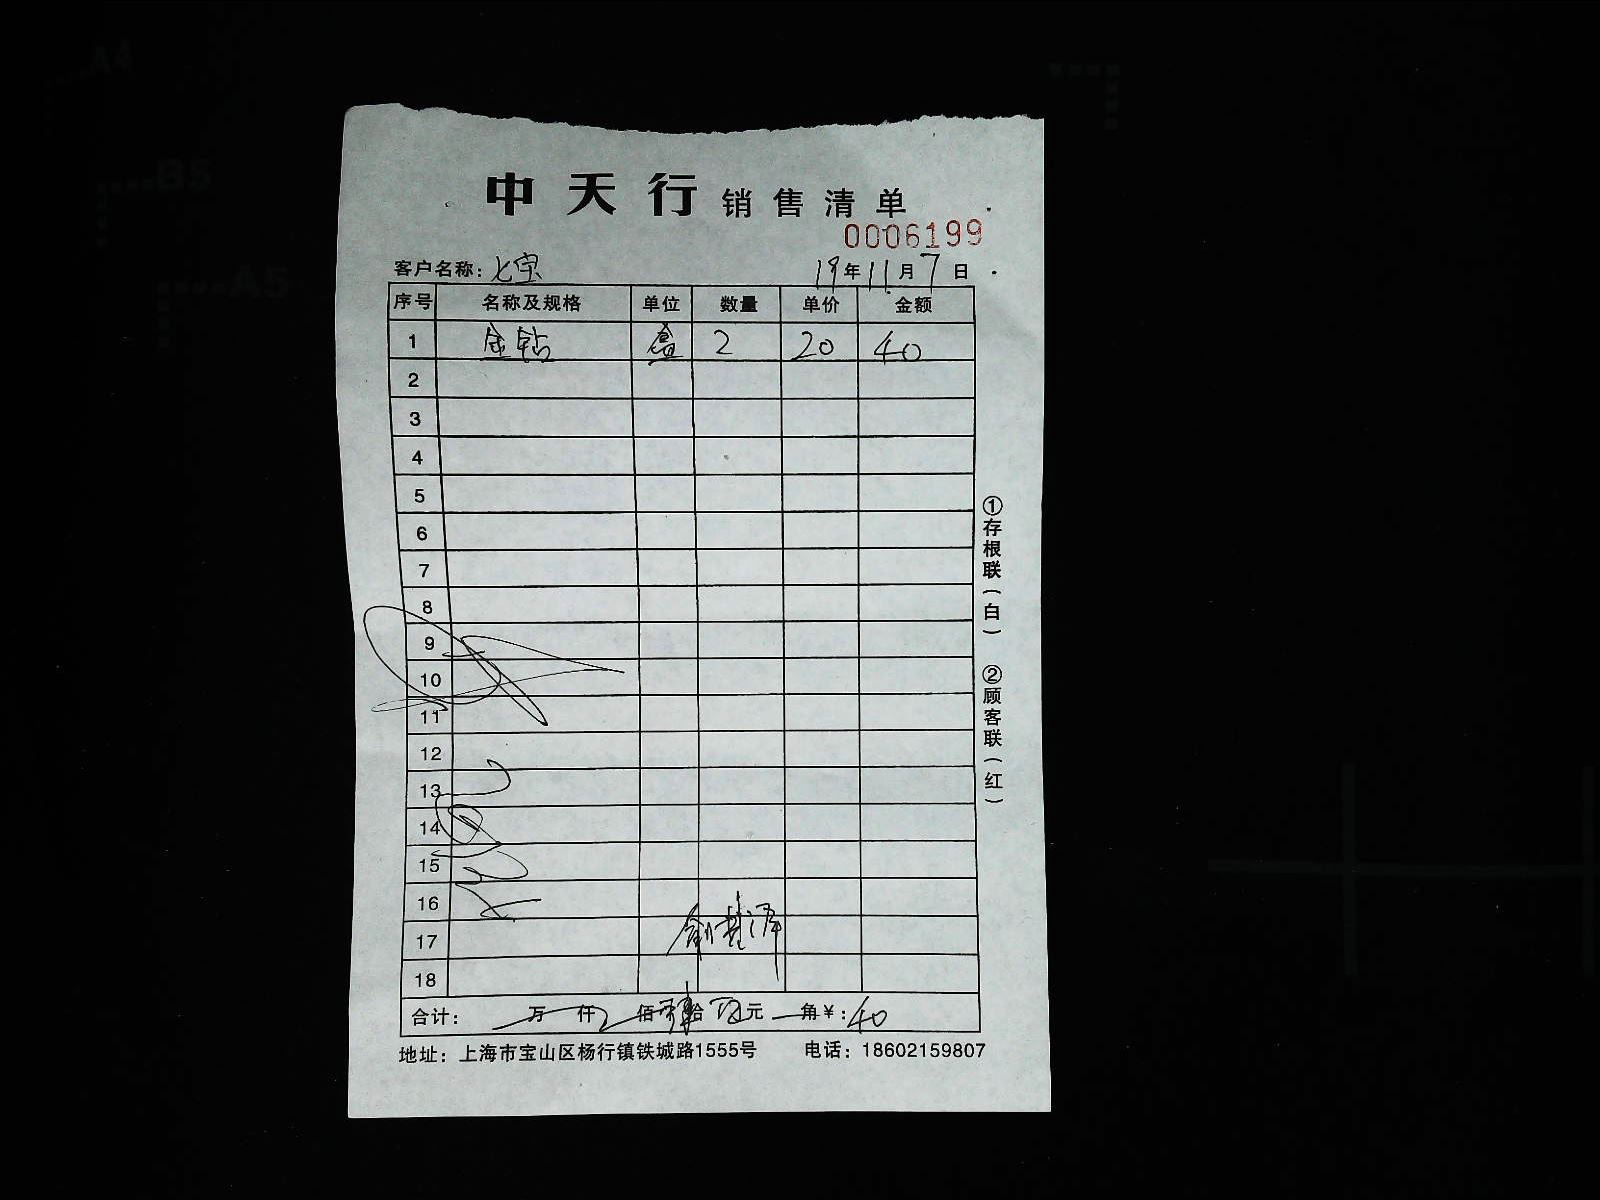 中天行 销售清单
0006199
客户名称：七宝 19年11月7日
序号 名称及规格 单位 数量 单价 金额
1 金钻 盒 2 20 40
2
3
4
5
6
7
8
9
10
11
12
13
14
15
16
17
18
合计： 万 仟 佰 肆拾 元 角￥：40
地址：上海市宝山区杨行镇铁城路1555号 电话：18602159807
①存根联（白） ②顾客联（红）
A4
B5
A5